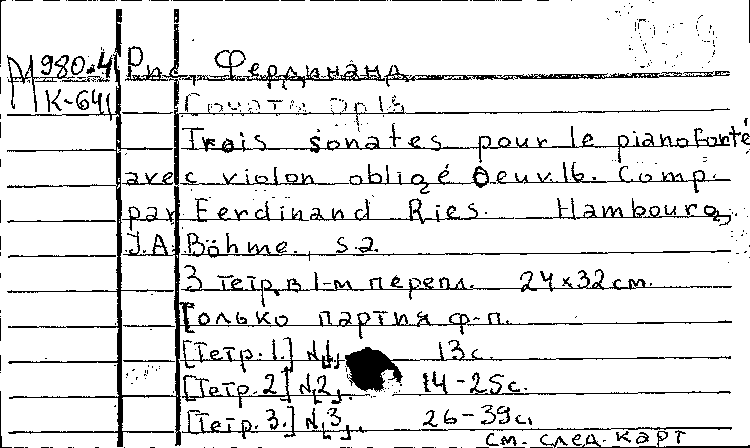 М980-4 Рис, Фердинанд.
К-641 Сонаты Op 16
Trois sonates pour le pianoforté
avec violon obligé Oeuv.16. Comp.
par Eerdinand Ries. Hambourg,
J.A. Böhme., s.a.
3 тетр. в 1-м перепл. 24x32 см.
Только партия ф-п.
[Тетр. 1.] N[1]. 13 с.
[Тетр. 2] N[2]. 14-25с.
[Тетр. 3.] N[3]. 26-39с.
см. след. карт